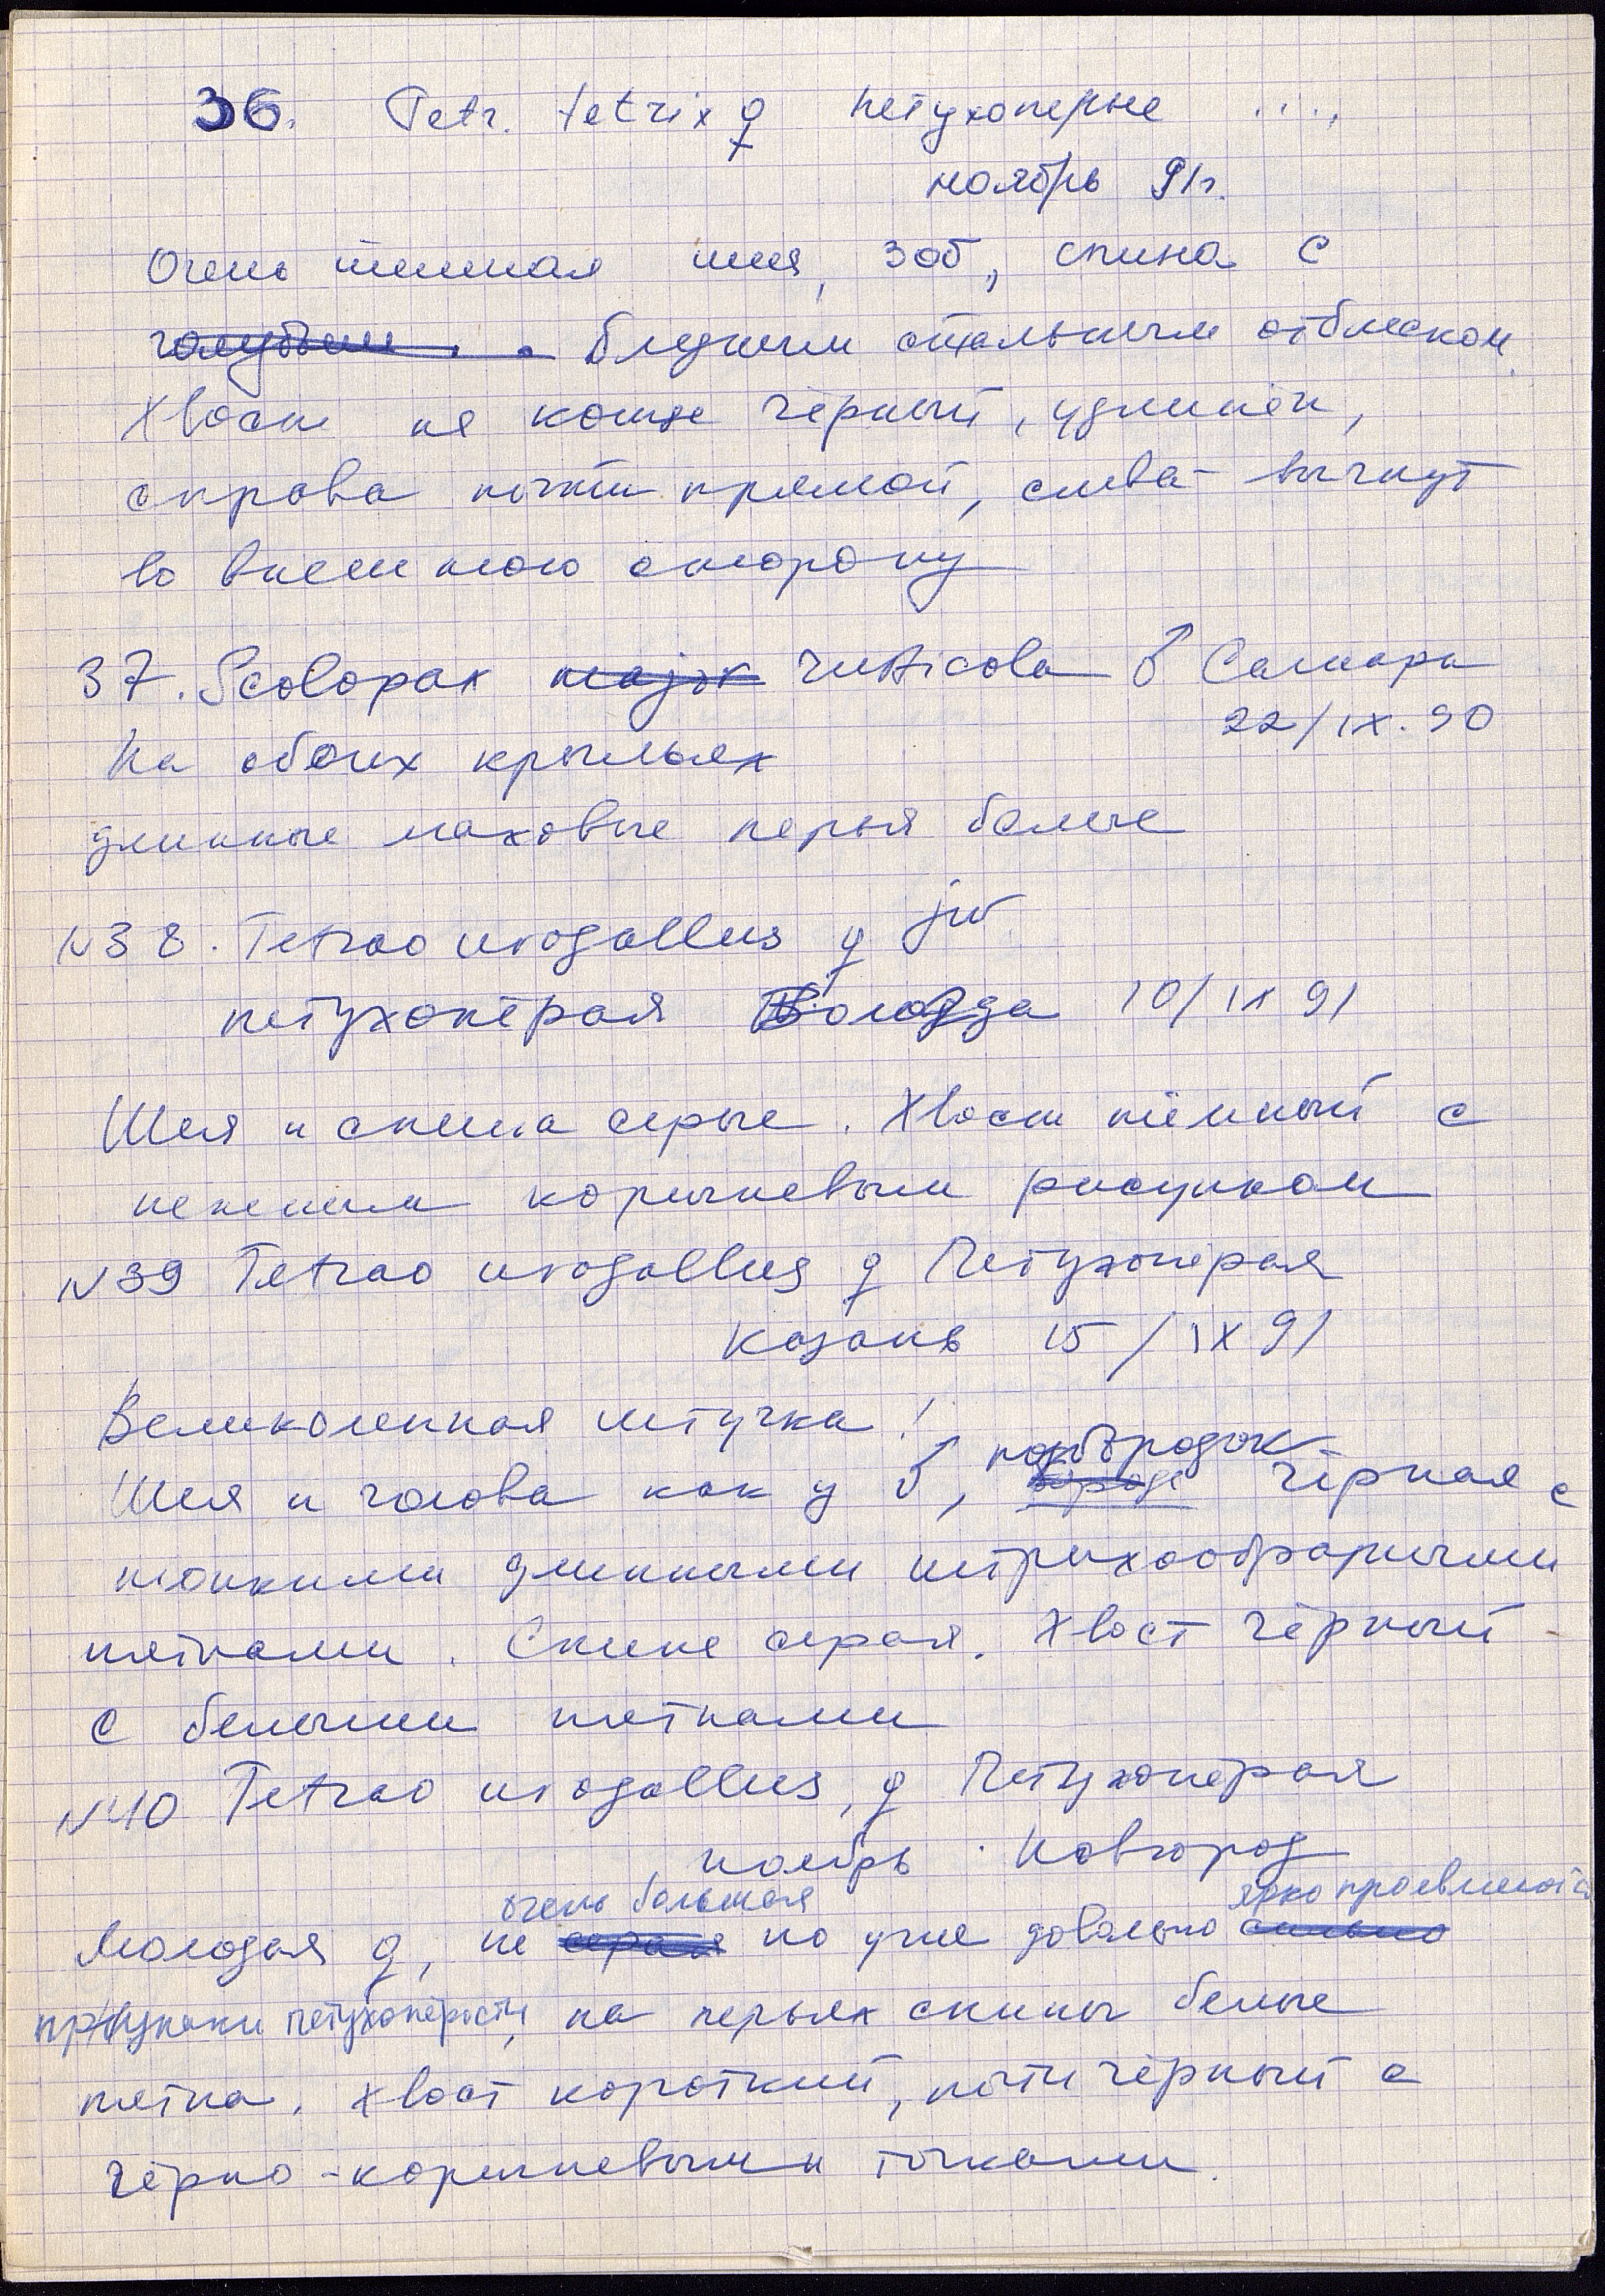 36. Tetr. tetrix ♀ петухоперые ....
ноябрь 91г.
Очень тёмная шея, зоб, спина с
голубым бледным стальным отблеском.
Хвост на конце чёрный, удлинён,
справа почти прямой, слева – выгнут
во внешнюю сторону
37. Scolopax major rusticola ♂ Самара
22/IX. 90
На обоих крыльях
длинные маховые перья белые
N38. Tetrao urogallus ♀ juv.
петухопёрая Вологда 10/IX 91
Шея и спина серые. Хвост тёмный с
нежным коричневым рисунком
N39 Tetrao urogallus ♀ Петухопёрая
Казань 15/IX 91
Великолепная штучка!
подбородок
Шея и голова как у ♂, чёрная с
тонкими длинными штрихообразными
пятнами. Спина серая. Хвост чёрный
с белыми пятнами
N40 Tetrao urogallus, ♀ Петухопёрая
ноябрь. Новгород
очень большая ярко проявились
Молодая ♀, не серая но уже довольно сильно
признаки петухопёрости, на перьях спины белые
пятна. Хвост короткий, почти чёрный с
чёрно-коричневыми точками.